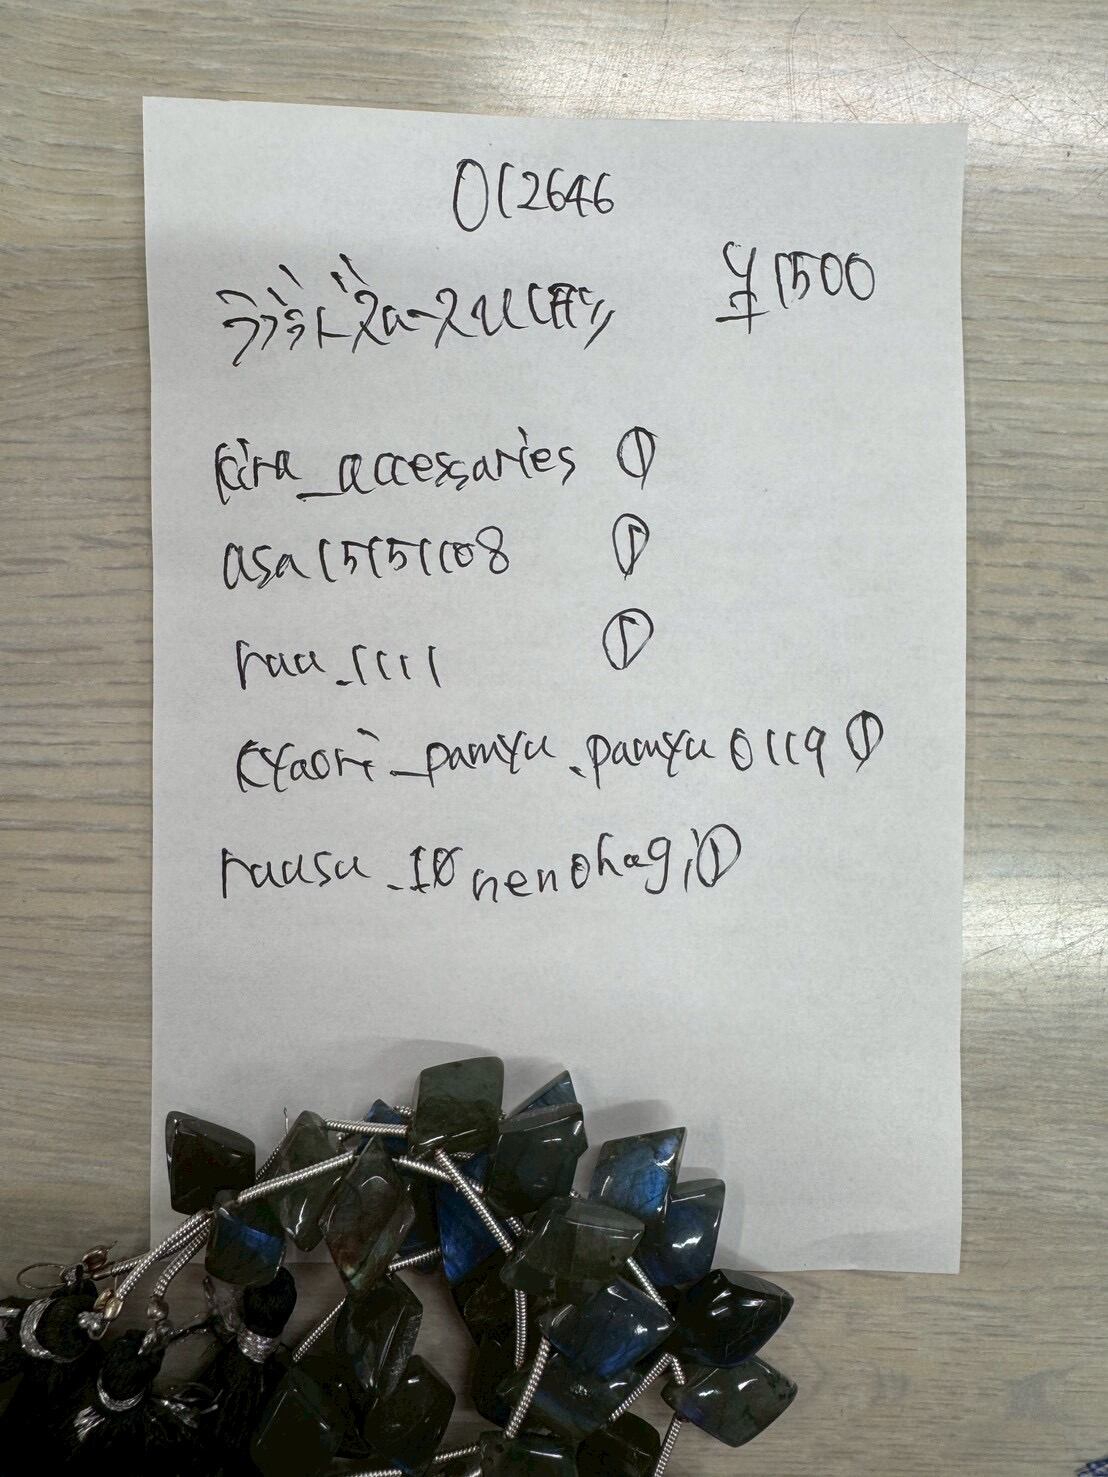 012646
¥1500
kira_accessaries ①
asa15151108 ①
ruu_1111 ①
kyaori_pamyu.pamyu0119 ①
ruusu_10nenohagi ①